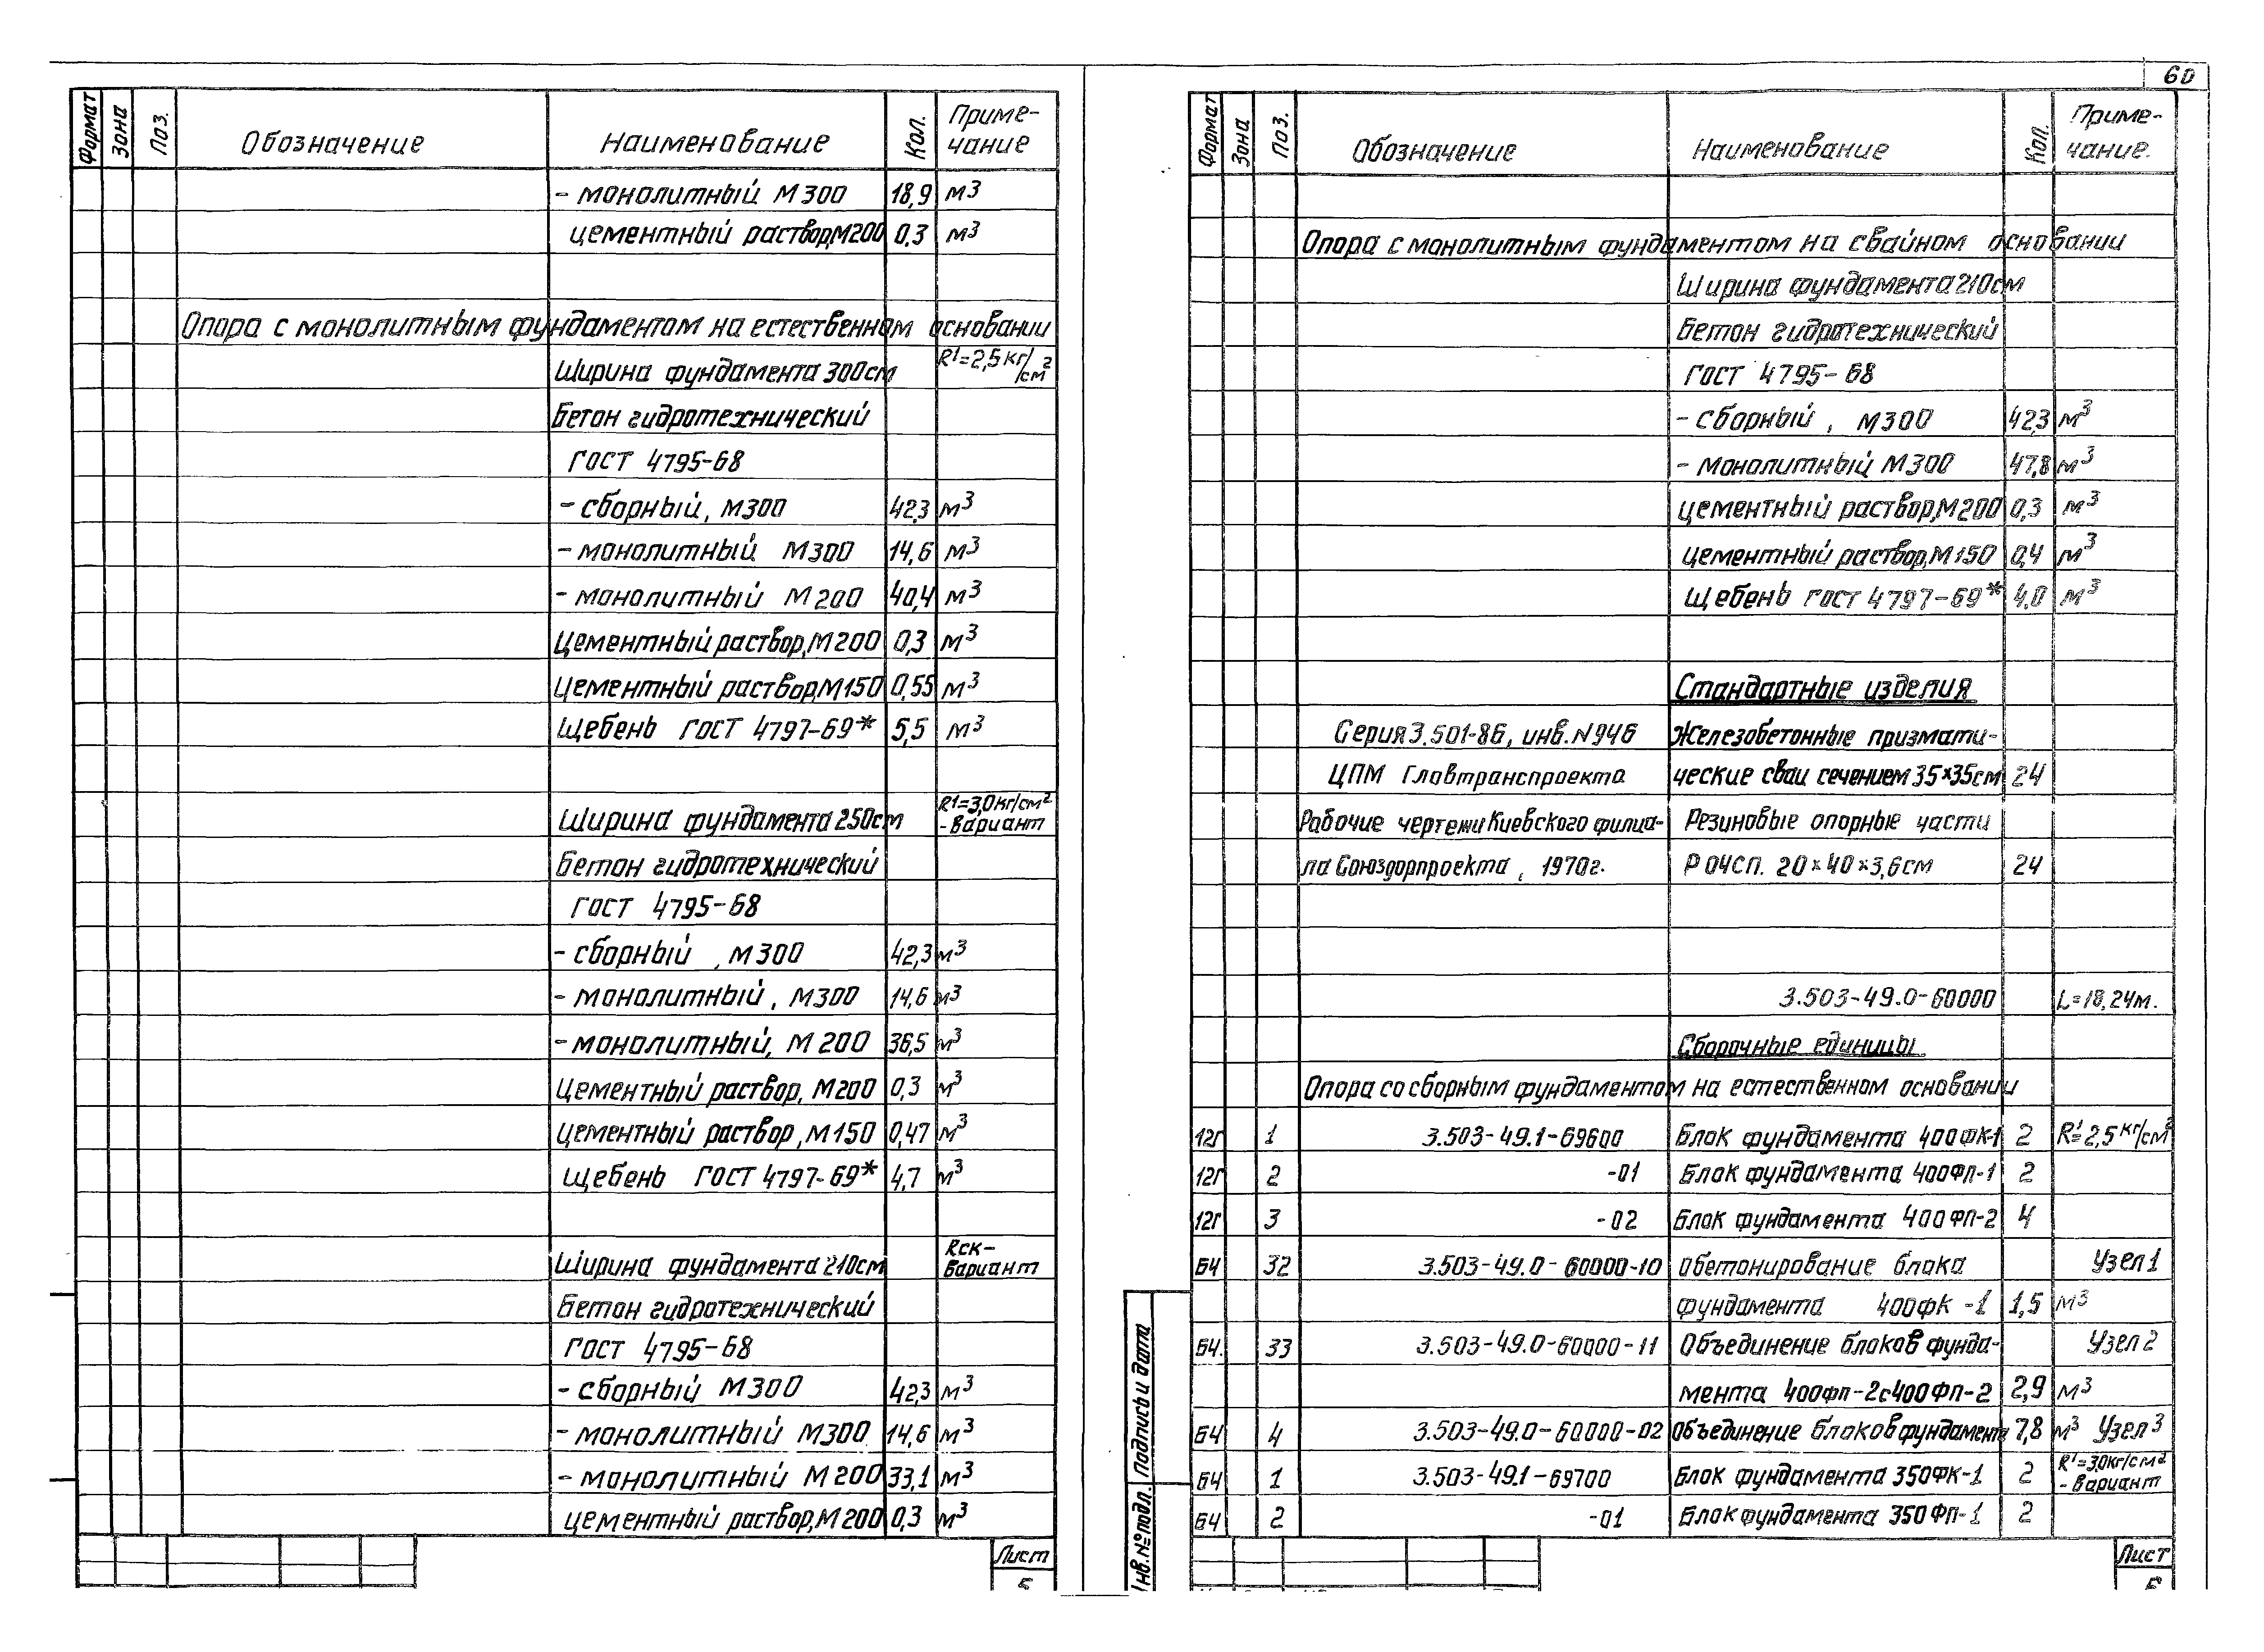 60
Формат Зона Поз. Обозначение Наименование Кол. Приме-
чание
- монолитный М300 18,9 м3
цементный раствор,М200 0,3 м3
Опора с монолитным фундаментом на естественном основании
Ширина фундамента 300см R¹=2,5 кг/см2
Бетон гидротехнический
ГОСТ 4795-68
- сборный, М300 42,3 м3
- монолитный М300 14,6 м3
- монолитный М200 40,4 м3
Цементный раствор,М200 0,3 м3
Цементный раствор,М150 0,55 м3
Щебень ГОСТ 4797-69* 5,5 м3
Ширина фундамента 250см R¹=3,0 кг/см2
- вариант
Бетон гидротехнический
ГОСТ 4795-68
- сборный , М300 42,3 м3
- монолитный, М300 14,6 м3
- монолитный, М200 36,5 м3
Цементный раствор, М200 0,3 м3
цементный раствор, М150 0,47 м3
щебень ГОСТ 4797-69* 4,7 м3
Ширина фундамента 210см Rск-
вариант
Бетон гидротехнический
ГОСТ 4795-68
- сборный М300 42,3 м3
- монолитный М300 14,6 м3
- монолитный М200 33,1 м3
цементный раствор,М200 0,3 м3
Лист
Формат Зона Поз. Обозначение Наименование Кол. Приме-
чание.
Опора с монолитным фундаментом на свайном основании
Ширина фундамента 210см
Бетон гидротехнический
ГОСТ 4795-68
- сборный , М300 42,3 м3
- монолитный М300 47,8 м3
цементный раствор,М200 0,3 м3
цементный раствор,М150 0,4 м3
щебень ГОСТ 4797-69* 4,0 м3
Стандартные изделия
Серия 3.501-86, инв.N946 Железобетонные призмати-
ЦПМ Главтранспроекта ческие сваи сечением 35×35см 24
Рабочие чертежи Киевского филиа- Резиновые опорные части
ла Союздорпроекта, 1970г. РОЧСП. 20×40×3,6см 24
3.503-49.0-60000 L=18,24м.
Сборочные единицы
Опора со сборным фундаментом на естественном основании
12Г 1 3.503-49.1-69600 Блок фундамента 400ФК-1 2 R¹=2,5 кг/см2
12Г 2 -01 Блок фундамента 400ФП-1 2
12Г 3 -02 Блок фундамента 400ФП-2 4
БЧ 32 3.503-49.0-60000-10 Обетонирование блока Узел 1
фундамента 400ФК-1 1,5 м3
БЧ. 33 3.503-49.0-60000-11 Объединение блоков фунда- Узел 2
мента 400ФП-2с400ФП-2 2,9 м3
БЧ 4 3.503-49.0-60000-02 Объединение блоков фундамента 7,8 м3 Узел 3
БЧ 1 3.503-49.1-69700 Блок фундамента 350ФК-1 2 R¹=3,0кг/см2
- вариант
БЧ 2 -01 Блок фундамента 350ФП-1 2
Инв.№подл. Подпись и дата
Лист